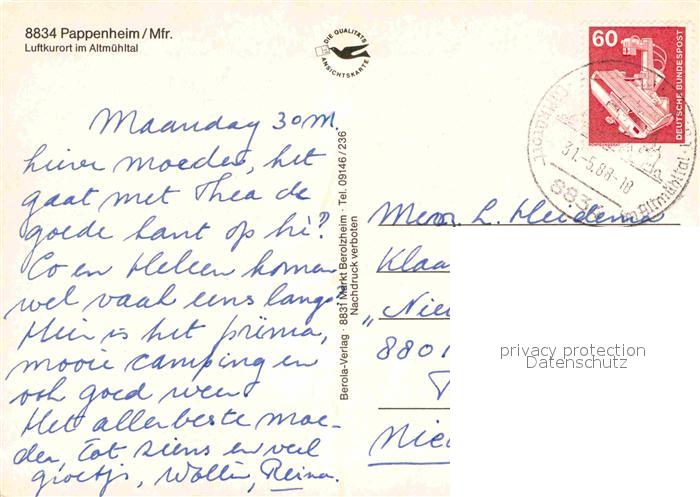 8834 Pappenheim/Mfr.
Luftkurort im Altmühltal
DIE QUALITÄTS
ANSICHTSKARTE
60
DEUTSCHE BUNDESPOST
31.-5.88-18
im Altmühltal
Maandag 30 M.
lieve moeder, het
gaat met Thea de
goede kant op hè?
Co en Heleen komen
wel vaak eens langs?
Hier is het prima,
mooie camping en
ook goed weer.
Het allerbeste moe-
der, tot ziens en veel
groetjes, Wolter, Reina.
Berola-Verlag · 8831 Markt Berolzheim · Tel. 09146/236
Nachdruck verboten
Mevr. L. Heidema
Klaa
"Nieu
8801
Nie
privacy protection
Datenschutz